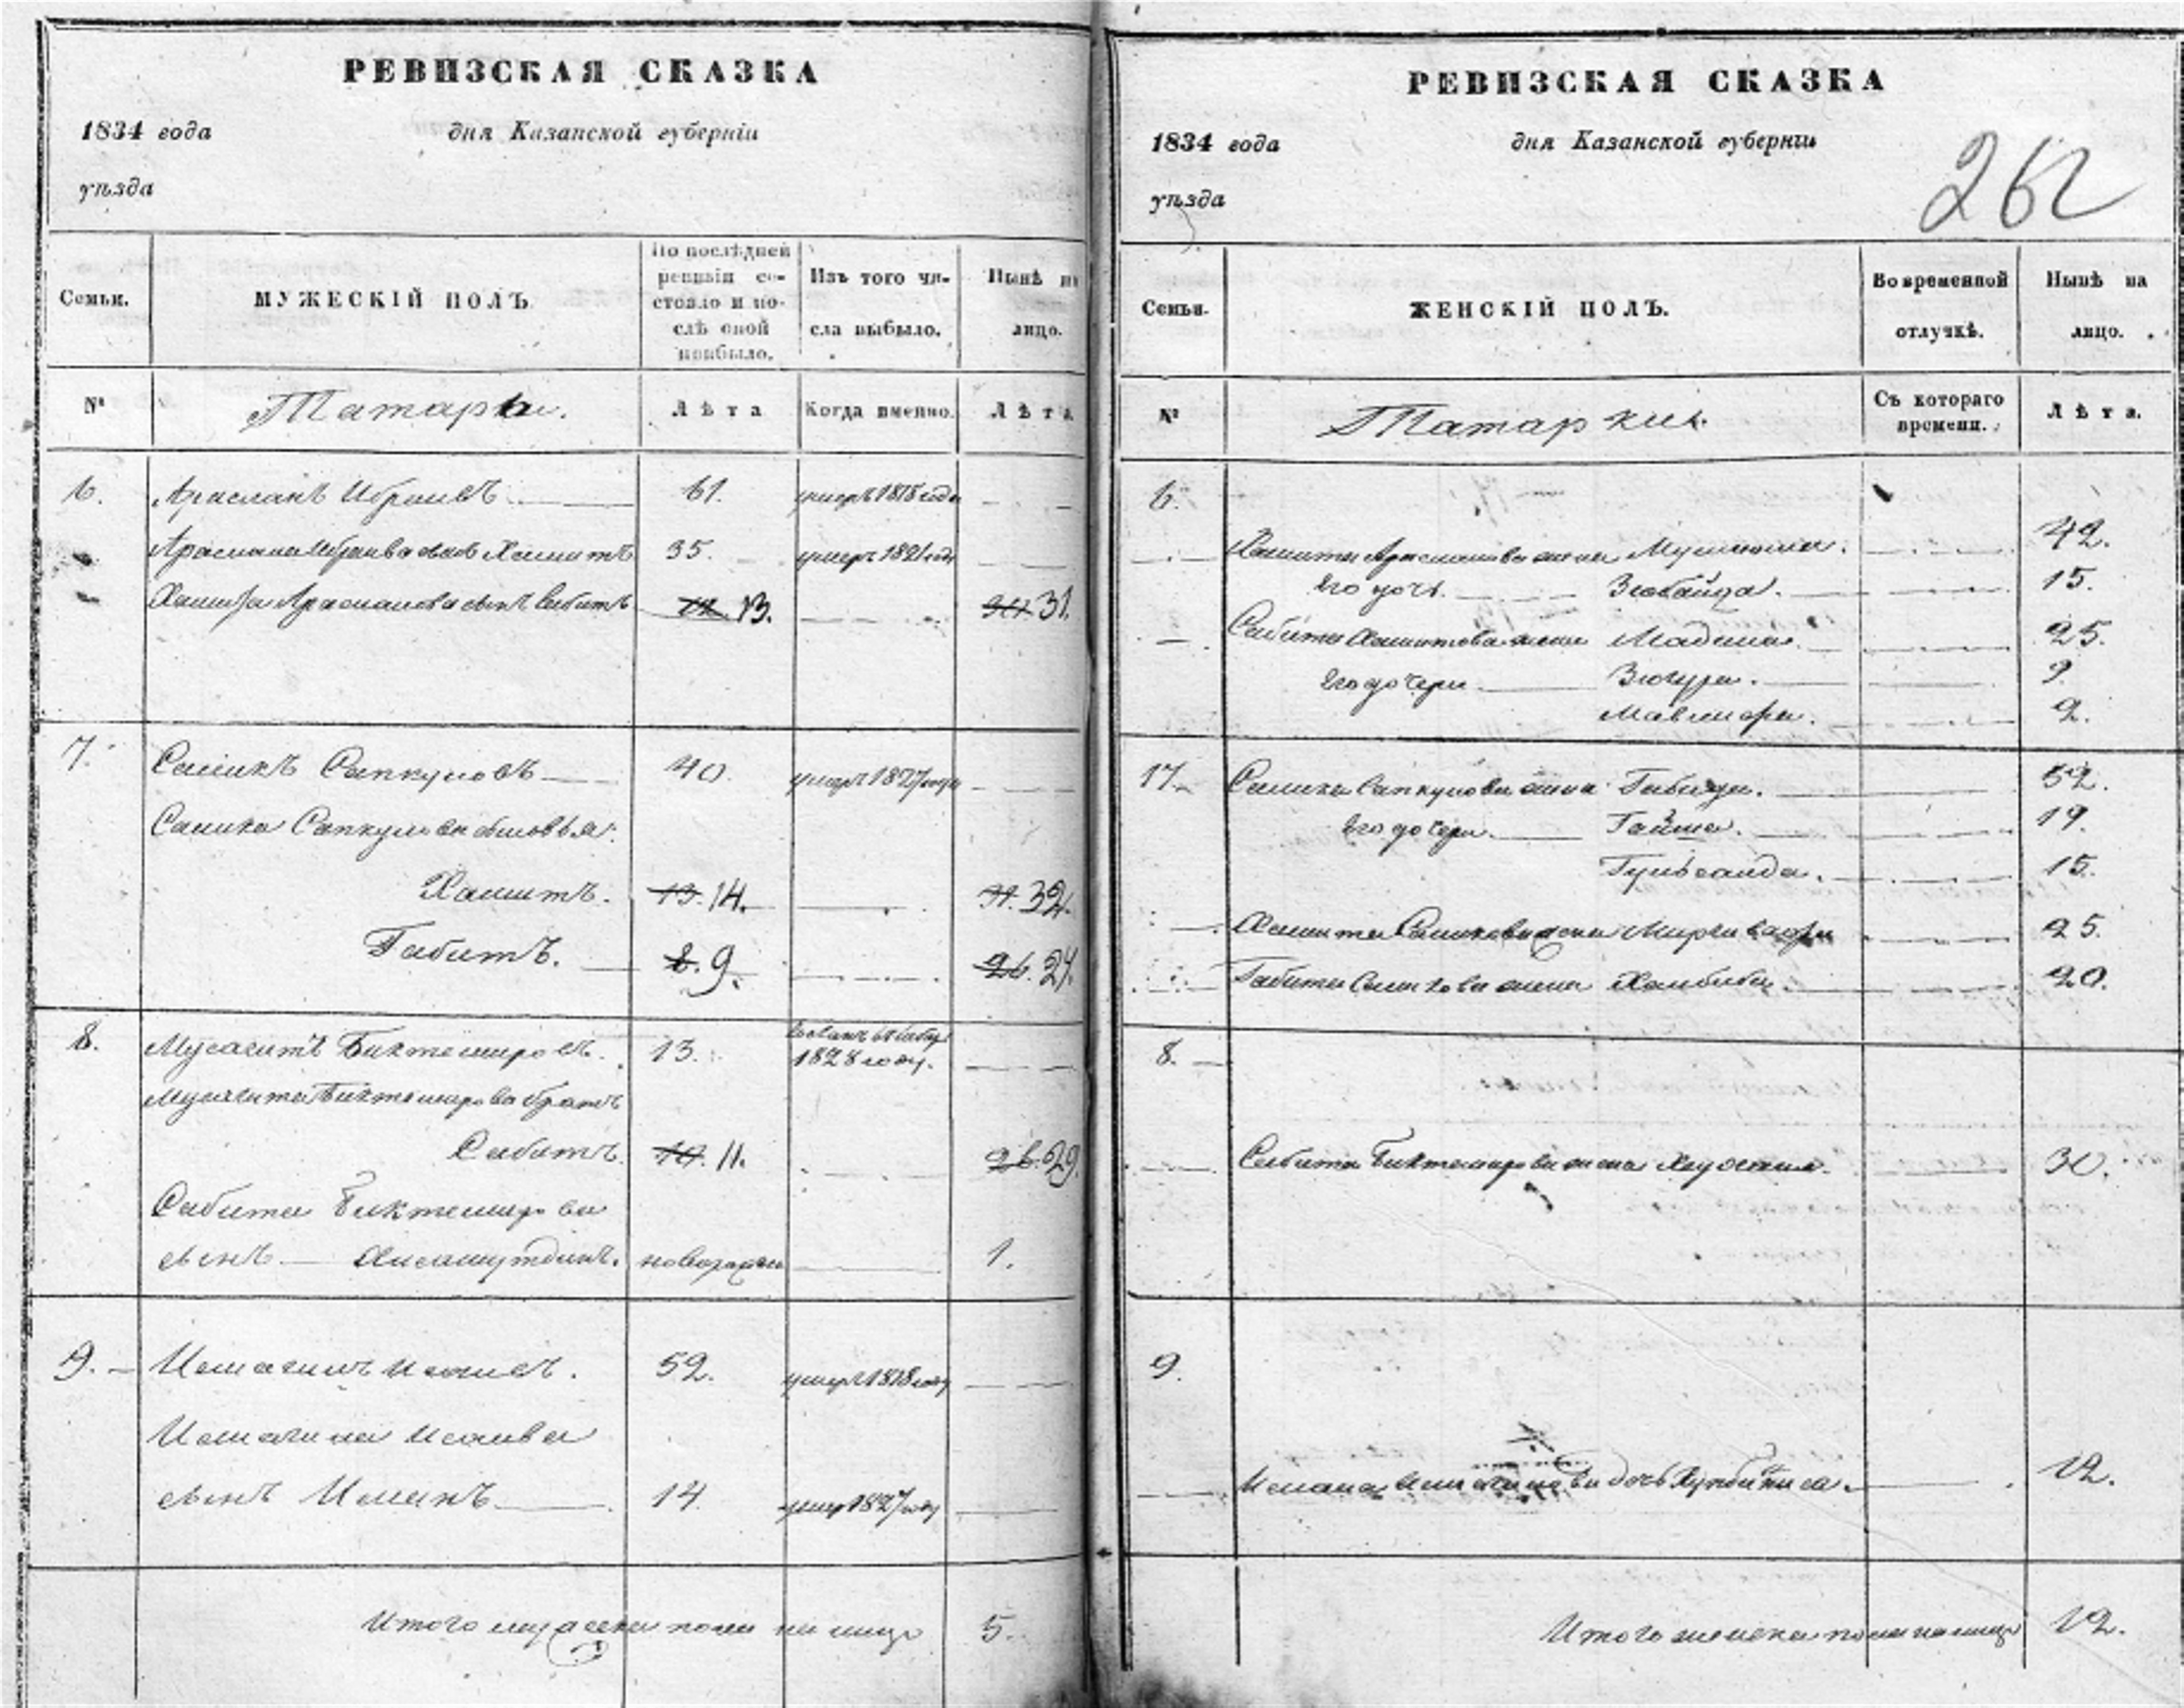 РЕВИЗСКАЯ СКАЗКА
1834 года дня Казанской губерніи
уѣзда
Семьи. МУЖЕСКІЙ ПОЛЪ. По послѣдней ревизіи состояло и послѣ оной прибыло. Изъ того числа выбыло. Нынѣ на лицо.
№ Татары. Лѣта Когда именно. Лѣта.
6. Арасланъ Ибраевъ 61. умеръ 1818 года
Араслана Ибраива сынъ Хамитъ 35. умеръ 1821 года
Хамита Арасланова сынъ Сабитъ 12. 13. 30. 31.
7. Саликъ Сапкуловъ 40. умеръ 1827 года
Салика Сапкулова сыновья:
Хамитъ. 13. 14. 31. 32.
Габитъ. 8. 9. 26. 27.
8. Мусагитъ Биктемировъ. 13. 1828 году.
Мусагита Биктемирова братъ
Сабитъ. 10. 11. 26. 29.
Сабита Биктемирова
сынъ Хисамутдинъ. новорожден 1.
9. Исмагилъ Исаевъ. 52. умеръ 1818 году
Исмагила Исаива
сынъ Исманъ 14. умер 1827 году
Итого мужеска пола на лицо 5.
РЕВИЗСКАЯ СКАЗКА
1834 года дня Казанской губерніи
уѣзда
262
Семьи. ЖЕНСКІЙ ПОЛЪ. Во временной отлучкѣ. Нынѣ на лицо.
№ Татарки. Съ котораго времени. Лѣта.
6.
Хамита Арасланова жена 42.
Его дочь. Зюбайда. 15.
Сабита Хамитова жена Мадина. 25.
Его дочери Зюгура. 9.
2.
17. Салика Сапкулова жена Габида. 52.
Его дочери. Гайша. 19.
Гульсаида. 15.
Хамита Саликова жена 25.
Габита Саликова жена Ханбиби. 20.
8.
Сабита Биктемирова жена 30.
9.
Исмагилова дочь 12.
Итого женска пола на лицо 12.